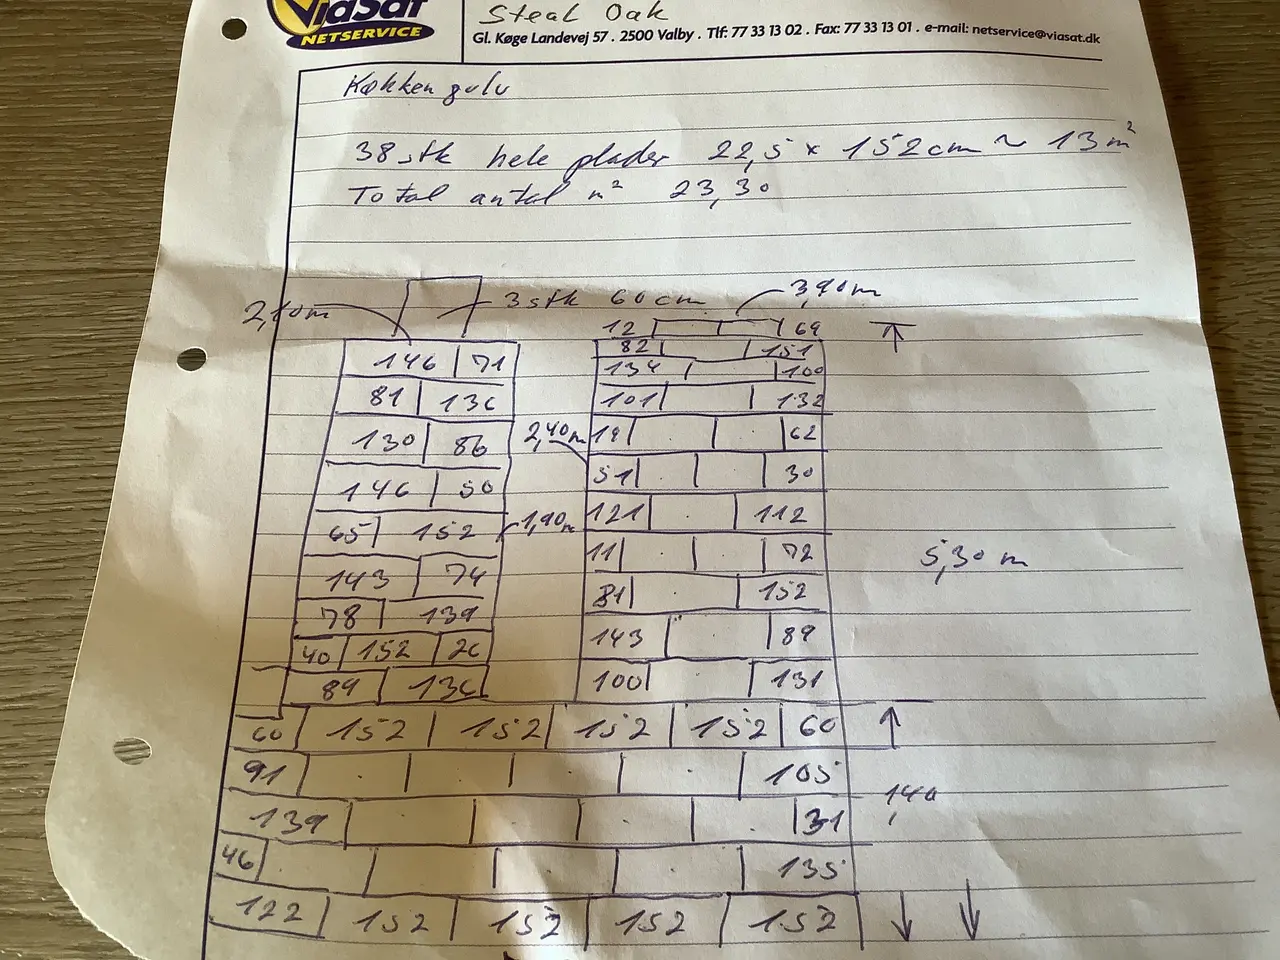 ViaSat
NETSERVICE
Steal Oak
Gl. Køge Landevej 57 . 2500 Valby . Tlf: 77 33 13 02 . Fax: 77 33 13 01 . e-mail: netservice@viasat.dk
Køkken gulv
38 stk hele plader 22,5 × 152 cm ~ 13 m²
Total antal m² 23,30
3 stk 60 cm
3,90 m
12 69
146 71
82 151
134 100
81 136
101 132
130 86
2,40 m
19 62
146 50
51 30
65 152
1,90 m
121 112
5,30 m
143 74
11 72
78 139
81 152
40 152 26
143 89
89 136
100 131
60 152 152 152 152 60
91 105
1,40
139 31
46 135
122 152 152 152 152